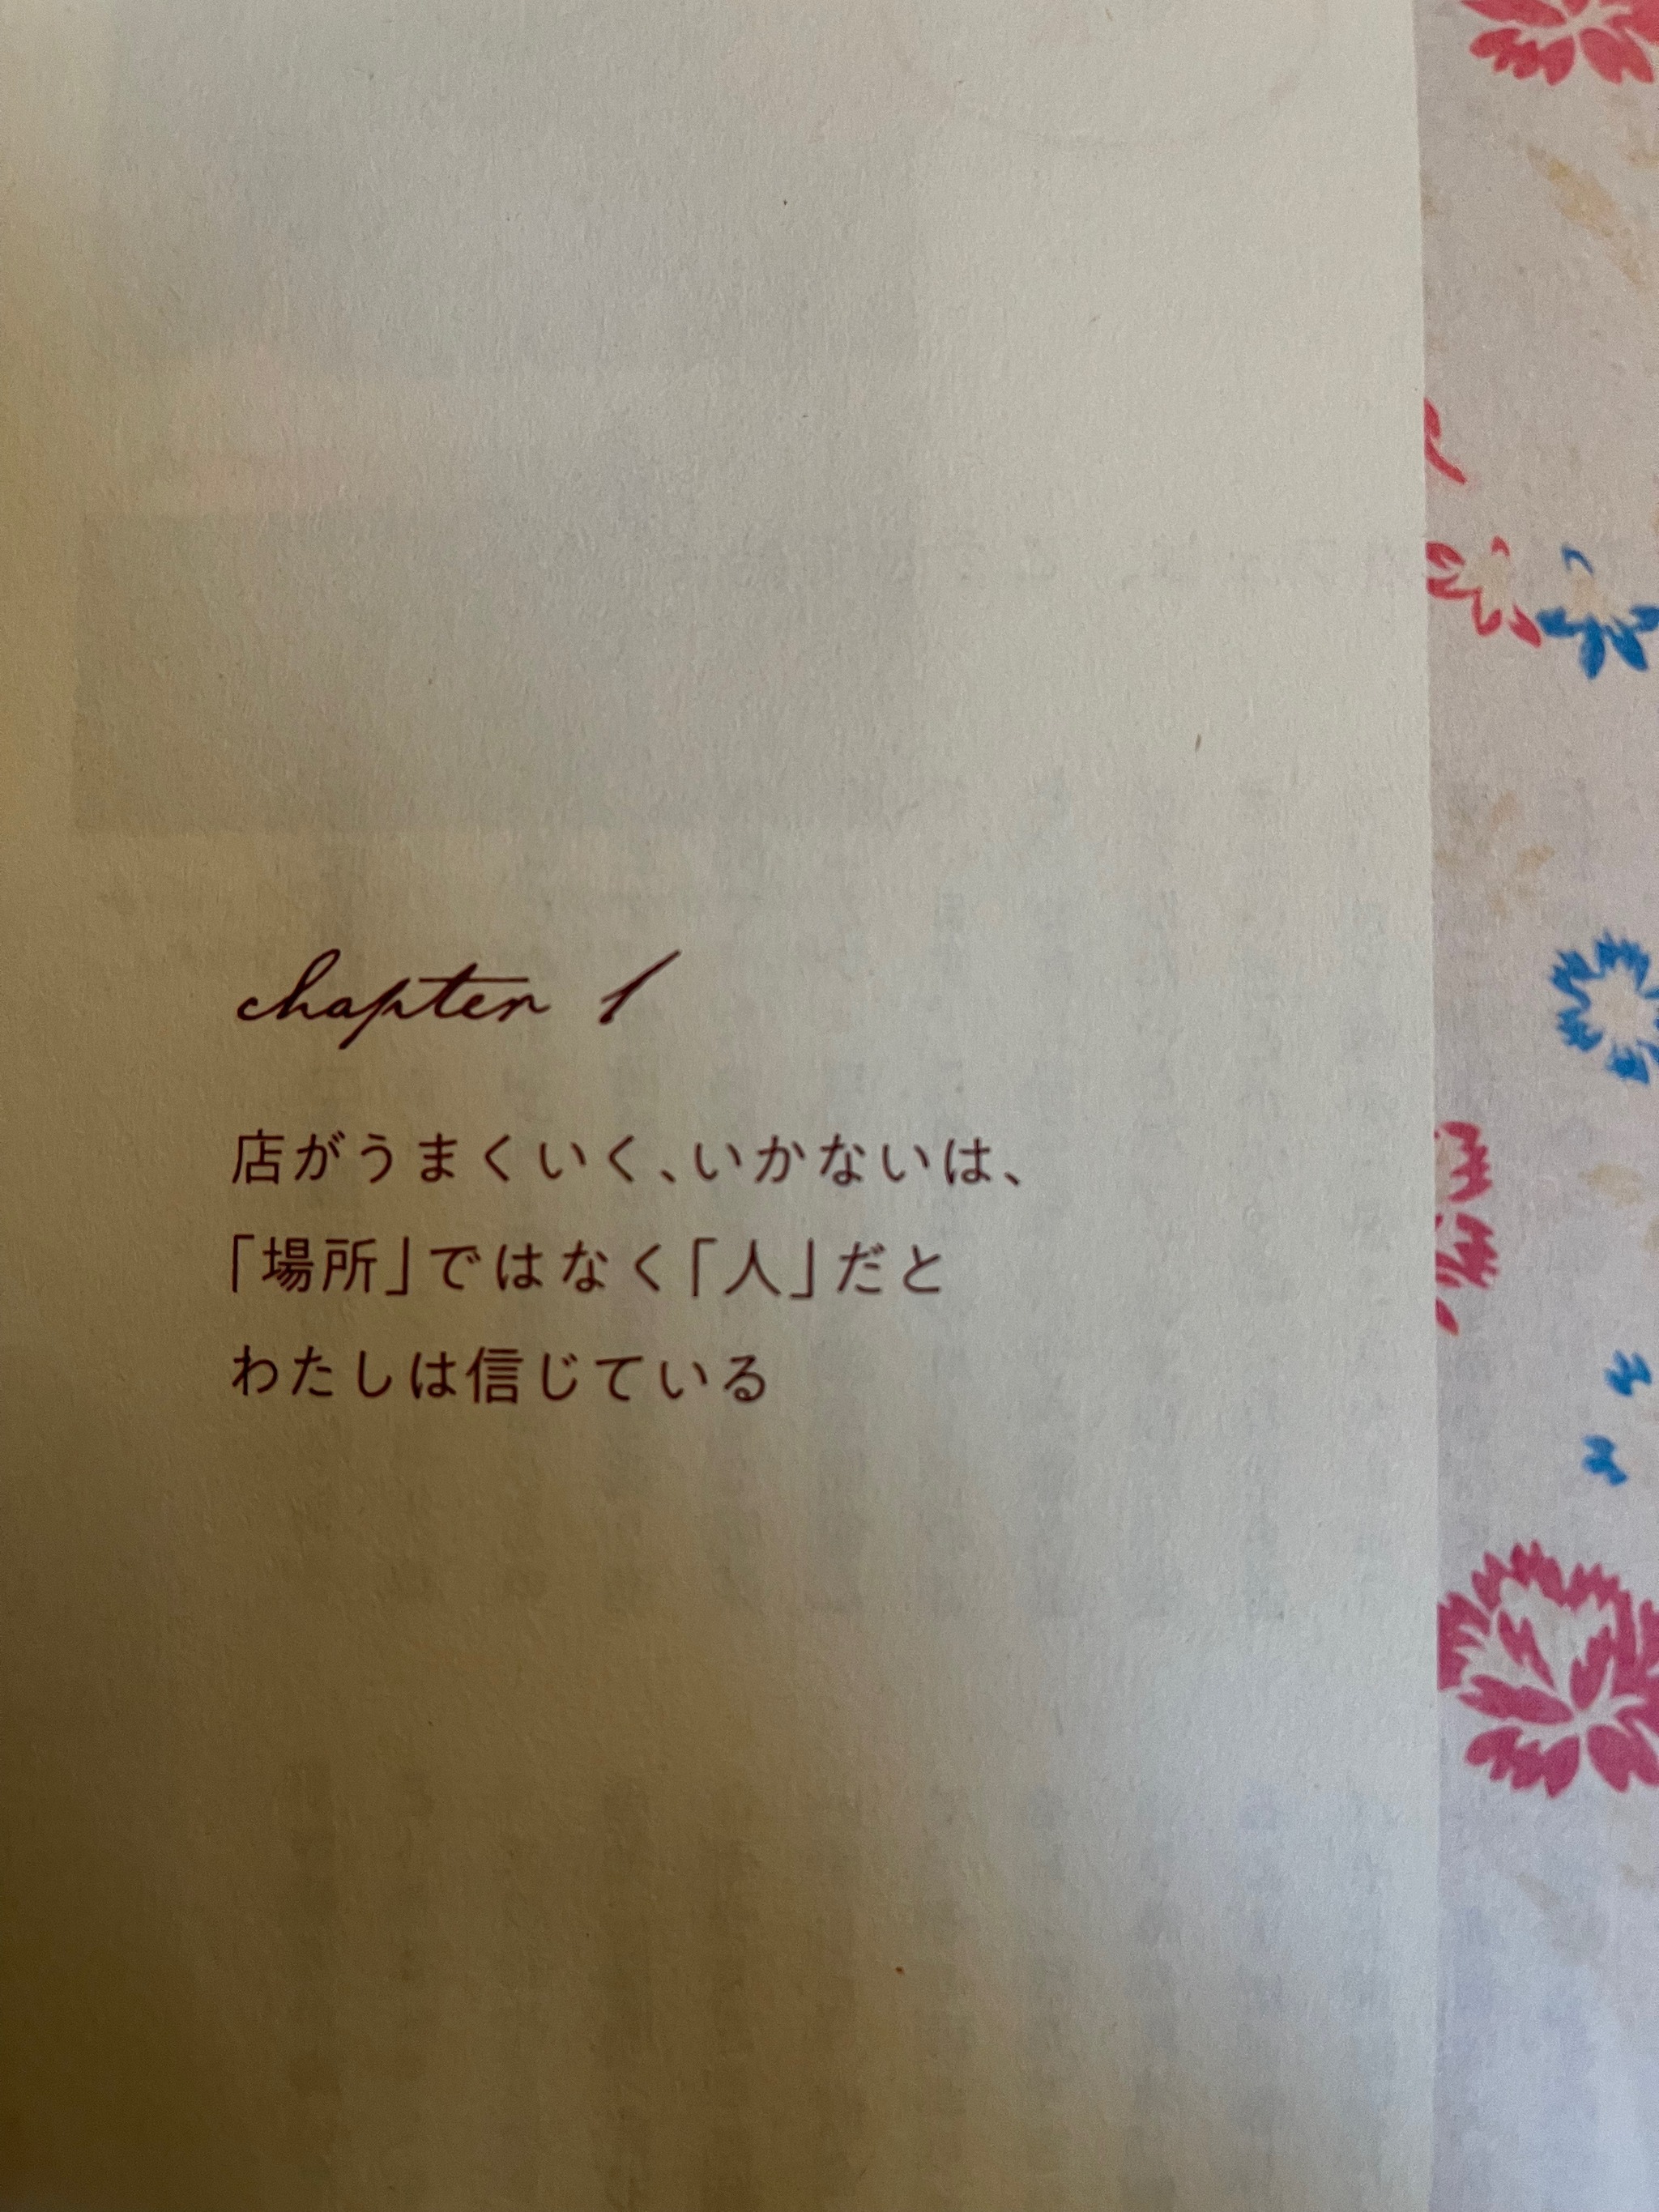 chapter 1
店がうまくいく、いかないは、
「場所」ではなく「人」だと
わたしは信じている